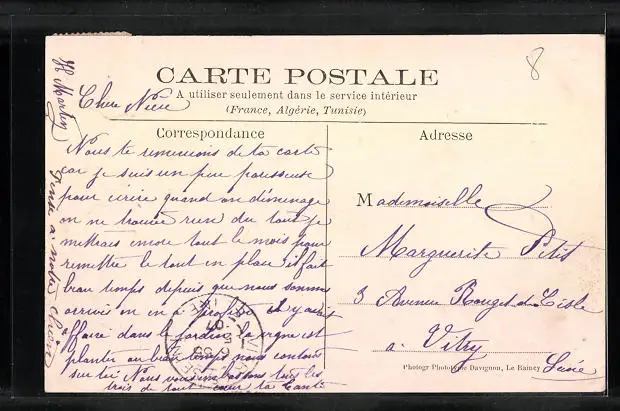 8
CARTE POSTALE
A utiliser seulement dans le service intérieur
(France, Algérie, Tunisie)
Correspondance
Adresse
Chère Nièce
Nous te remercions de ta carte
car je suis un peu paresseuse
pour écrire quand on déménage
on ne trouve rien du tout je
mettrais encore tout le mois pour
remettre le tout en place il fait
beau temps depuis que nous sommes
arrivés on en a profité il y avait
affaire dans le jardin la vigne est
planter au beau temps nous contons
sur toi Nous vous embrassons tous les
trois de tout cœur ta tante
H Martin
Mademoiselle
Marguerite Petit
3 Avenue Rouget de l'Isle
a Vitry
Seine
Photogr Phototypie Davignon, Le Raincy